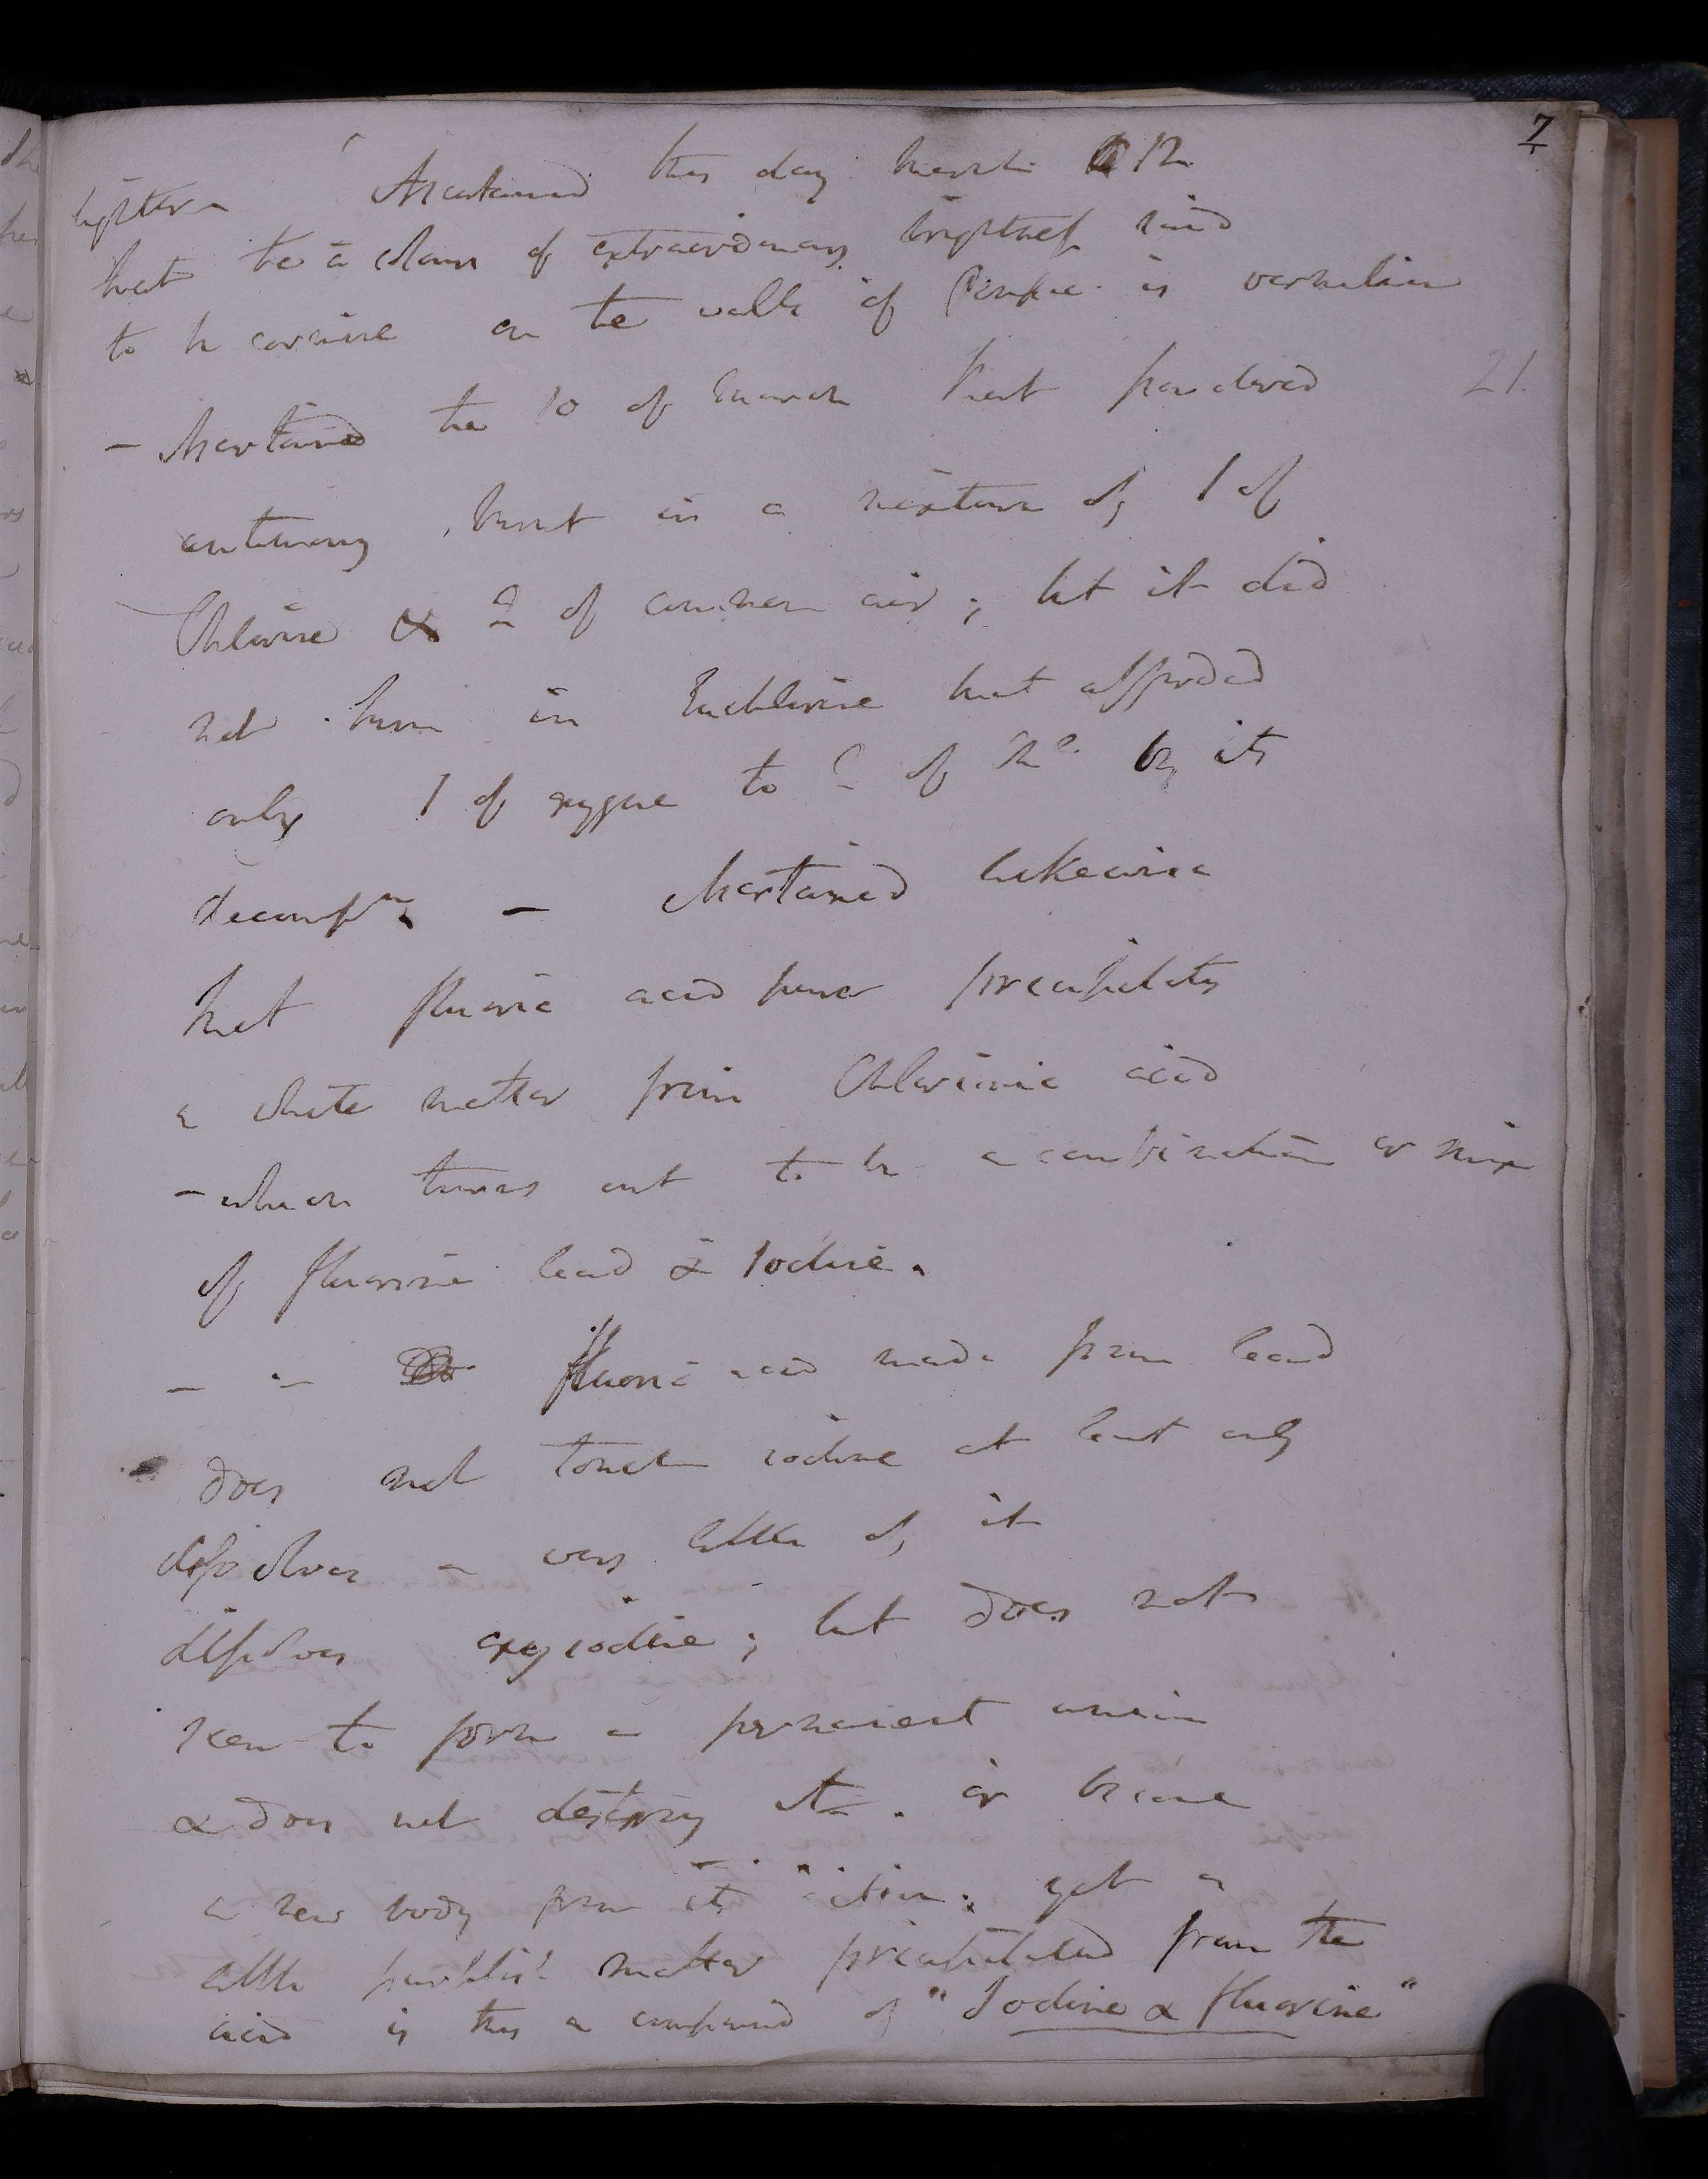 7
lighter - Ascertained this day March 12.
that the a colour of extraordinary brightness said
to be carmine on the walls of Pompeii is vermilion
21.
- Ascertained the 10 of March that powdered
antimony burnt in a mixture of 1 of
Chlorine & 2 of common air; but it did
not burn in Euchlorine that afforded
only 1 of oxygene to of by its
decompn - Ascertained likewise
that fluoric acid pure precipitates
a white matter from Chlorionic acid
- which turns out to be a combination or mix
of fluorine lead & Iodine.
- - fluoric acid made from lead
does not touch iodine at least only
dissolves a very little of it
dissolves oxyiodine; but does not
seem to form a permanent union
& does not destroy it. or become
a new body from its action; yet a
little purplish matter precipitated from the
acid is this a compound of "Iodine & fluorine"